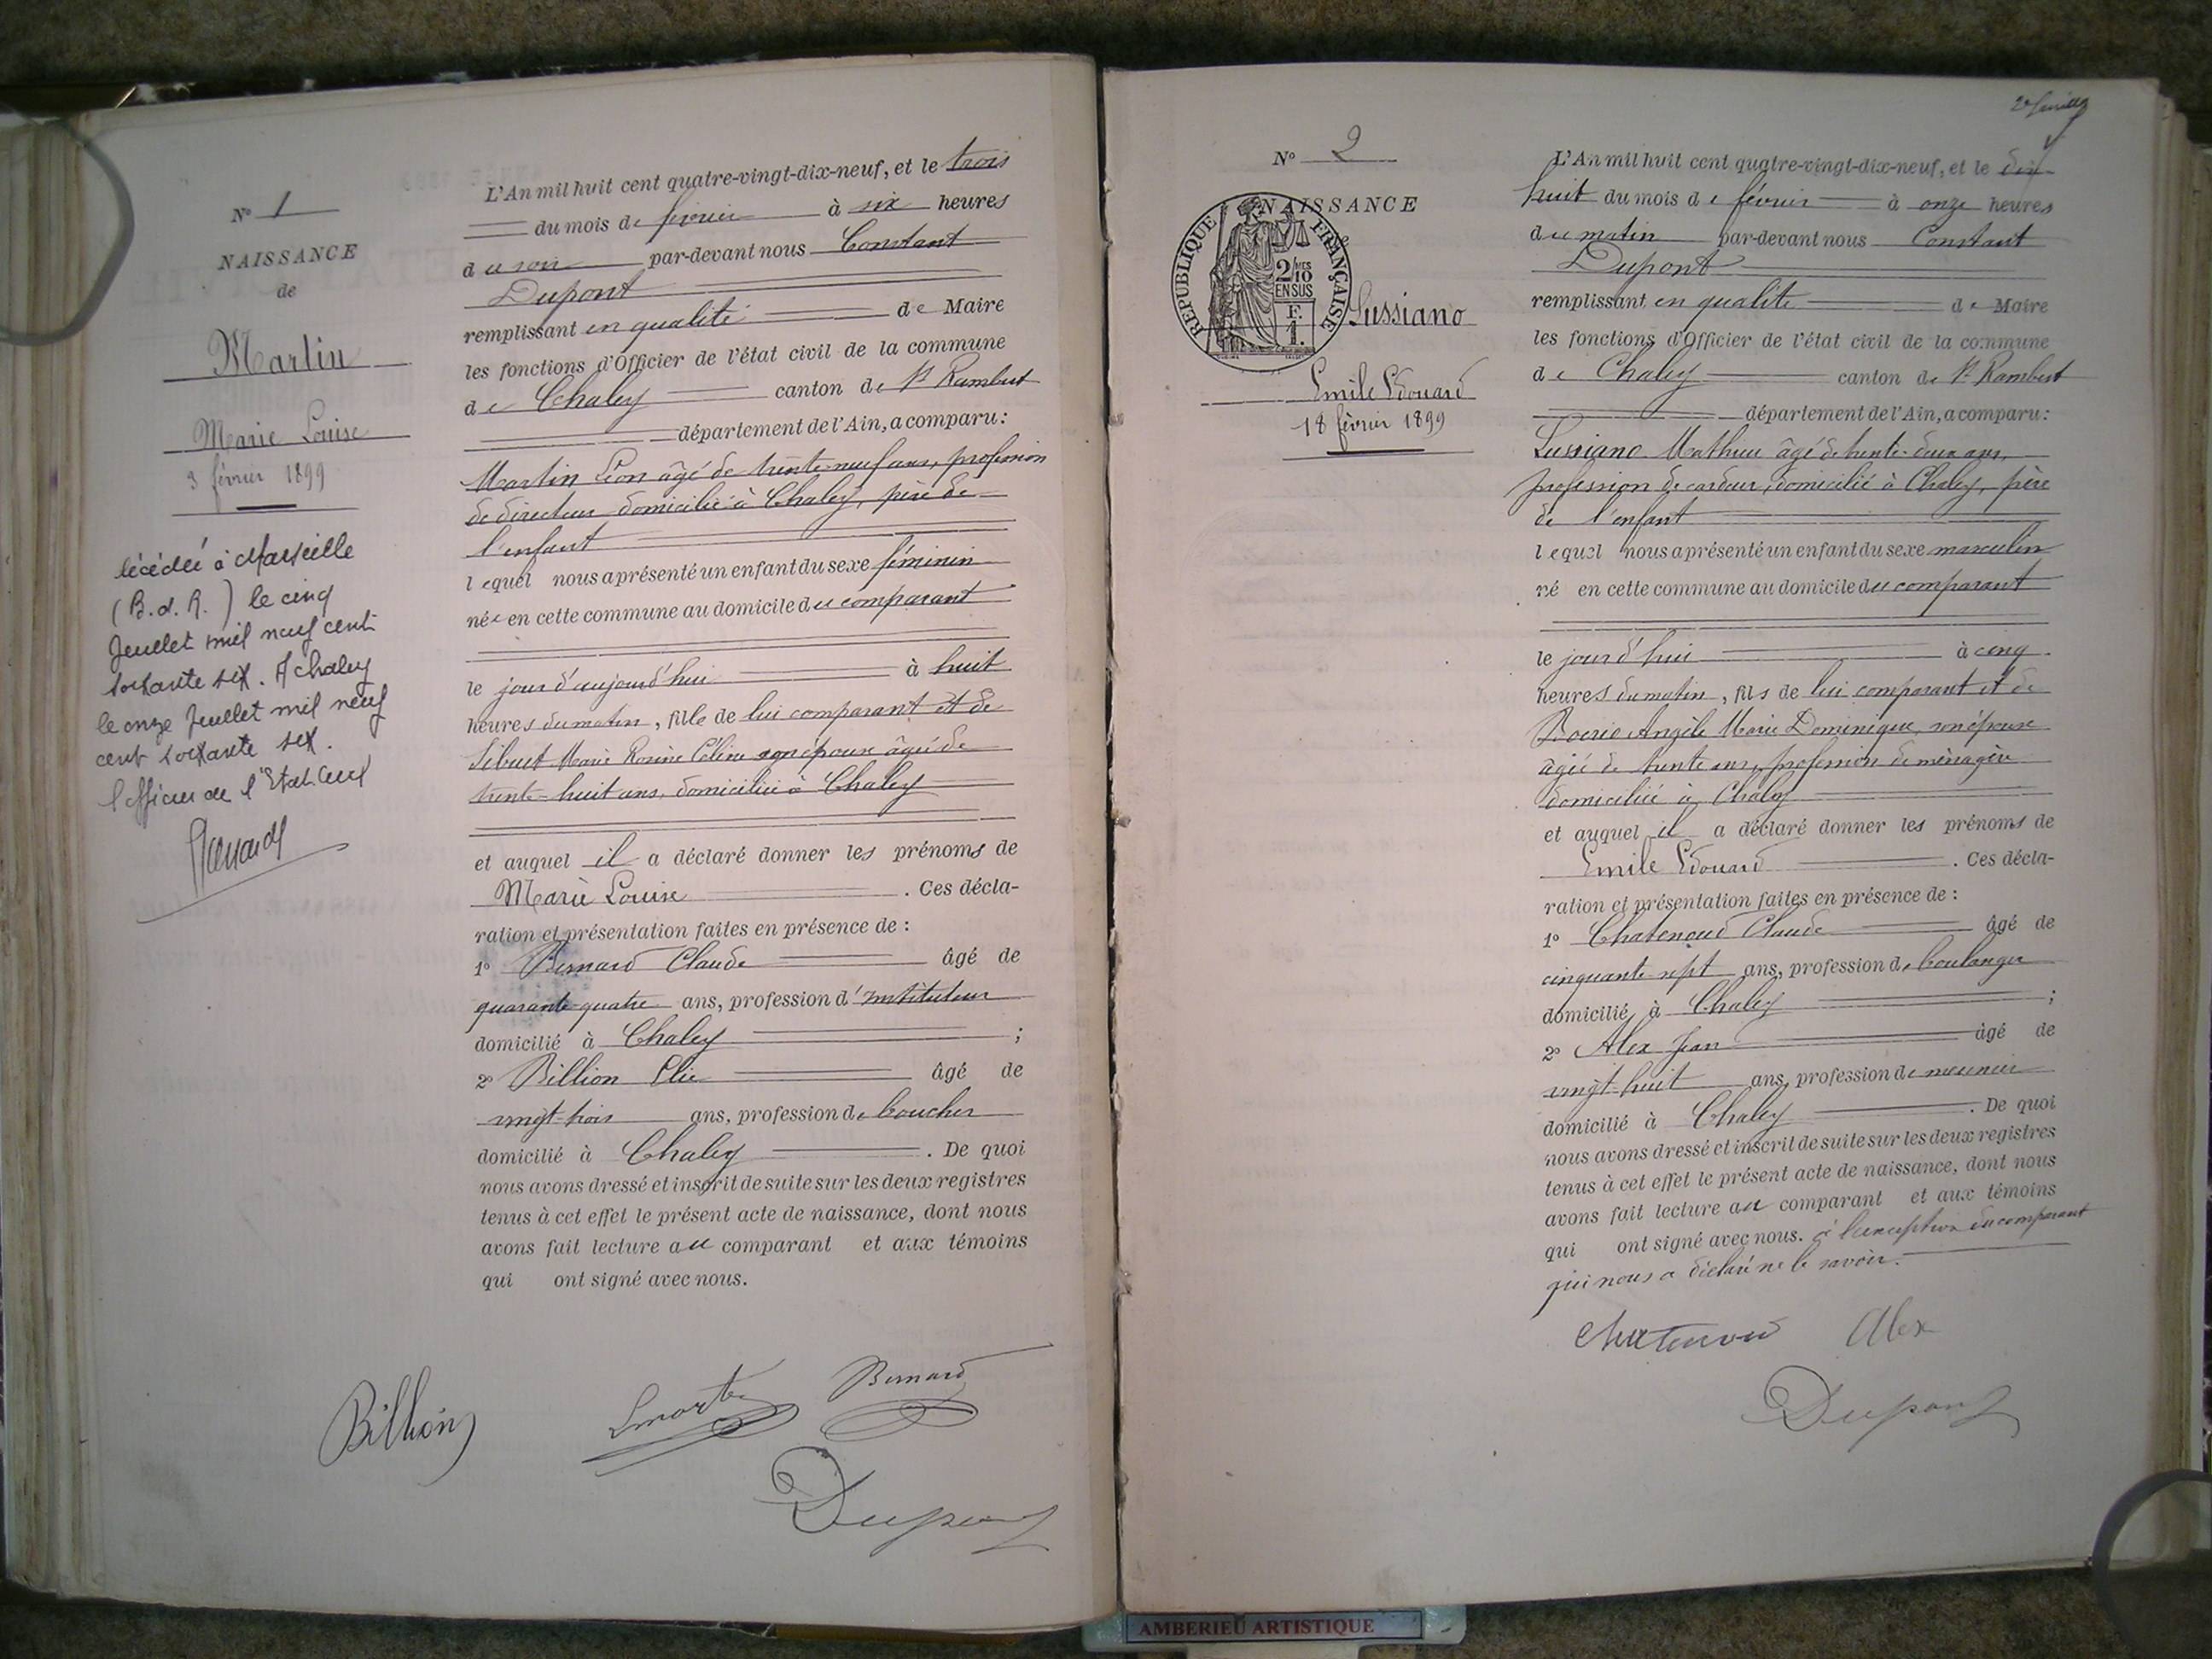 N° 1
NAISSANCE
de
Martin
Marie Louise
3 février 1899
décédée à Marseille
(B.d.R.) le cinq
Juillet mil neuf cent
soixante six. A chaley
le onze Juillet mil neuf
cent soixante six.
l'officier de l'Etat Civil
L'An mil huit cent quatre-vingt-dix-neuf, et le trois
du mois de février à six heures
du soir par-devant nous Constant
Dupont
remplissant en qualité de Maire
les fonctions d'Officier de l'état civil de la commune
de Chaley canton de St Rambert
département de l'Ain, a comparu:
Martin Léon âgé de trente-neuf ans, profession
de directeur domicilié à Chaley, père de
l'enfant
lequel nous a présenté un enfant du sexe féminin
née en cette commune au domicile du comparant
le jour d'aujourd'hui à huit
heures du matin, fille de lui comparant et de
Sibuet Marie Rosine Céline son épouse âgée de
trente-huit ans, domiciliée à Chaley
et auquel il a déclaré donner les prénoms de
Marie Louise. Ces décla-
ration et présentation faites en présence de :
1° Bernard Claude âgé de
quarante-quatre ans, profession d'instituteur
domicilié à Chaley ;
2° Billion Elie âgé de
vingt-trois ans, profession de boucher
domicilié à Chaley. De quoi
nous avons dressé et inscrit de suite sur les deux registres
tenus à cet effet le présent acte de naissance, dont nous
avons fait lecture au comparant et aux témoins
qui ont signé avec nous.
Billion LMartin Bernard
Dupont
2e feuillet
N° 2
NAISSANCE
REPUBLIQUE FRANÇAISE
2/10 MES
EN SUS
F.
1.
Sussiano
Emile Edouard
18 février 1899
L'An mil huit cent quatre-vingt-dix-neuf, et le dix-
huit du mois de février à onze heures
du matin par-devant nous Constant
Dupont
remplissant en qualité de Maire
les fonctions d'Officier de l'état civil de la commune
de Chaley canton de St Rambert
département de l'Ain, a comparu:
Sussiano Mathieu âgé de trente-deux ans,
profession de cardeur, domicilié à Chaley, père
de l'enfant
lequel nous a présenté un enfant du sexe masculin
né en cette commune au domicile du comparant
le jour d'hui à cinq
heures du matin, fils de lui comparant et de
Boerio Angèle Marie Dominique, son épouse
âgée de trente ans, profession de ménagère
domiciliée à Chaley
et auquel il a déclaré donner les prénoms de
Emile Edouard. Ces décla-
ration et présentation faites en présence de :
1° Chatenoud Claude âgé de
cinquante sept ans, profession de boulanger
domicilié à Chaley ;
2° Alex Jean âgé de
vingt-huit ans, profession de meunier
domicilié à Chaley. De quoi
nous avons dressé et inscrit de suite sur les deux registres
tenus à cet effet le présent acte de naissance, dont nous
avons fait lecture au comparant et aux témoins
qui ont signé avec nous. à l'exception du comparant
qui nous a déclaré ne le savoir.
Chatenoud Alex
Dupont
AMBERIEU ARTISTIQUE